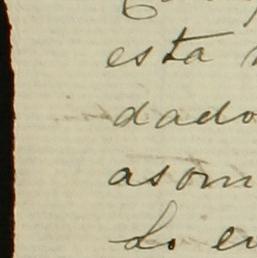 esta
dado
asom
Lo en